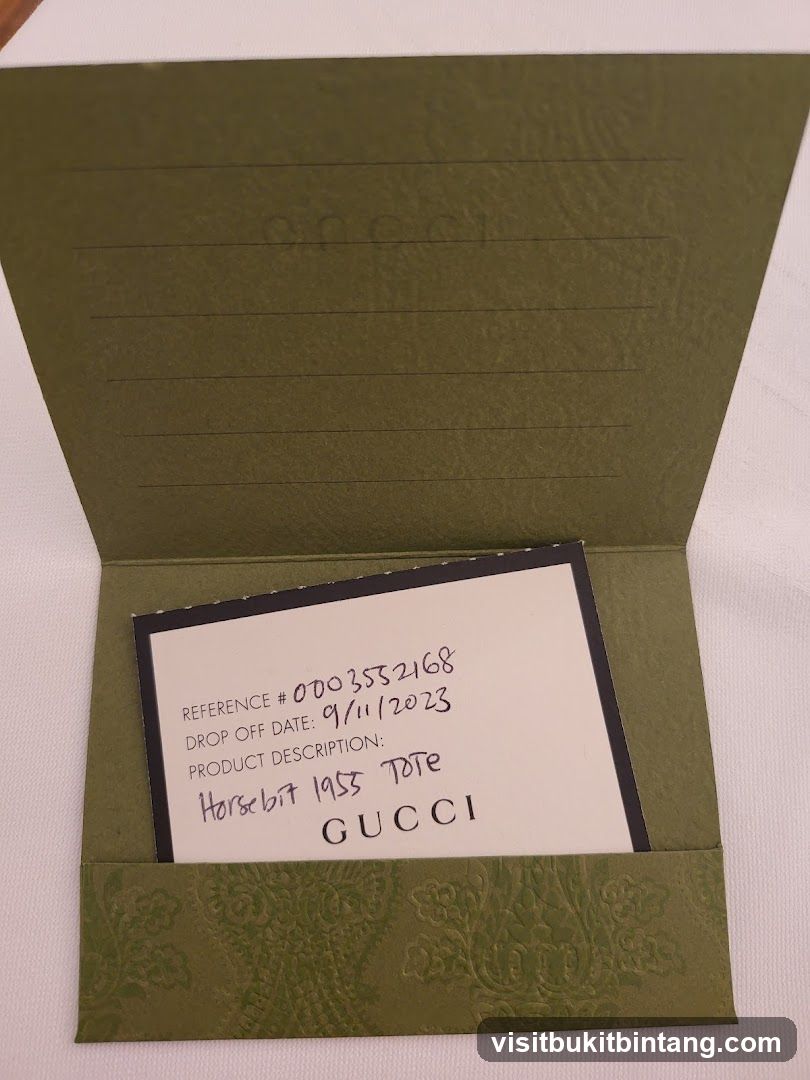 GUCCI
REFERENCE # 0003552168
DROP OFF DATE: 9/11/2023
PRODUCT DESCRIPTION:
Horsebit 1955 TOTE
GUCCI
visitbukitbintang.com